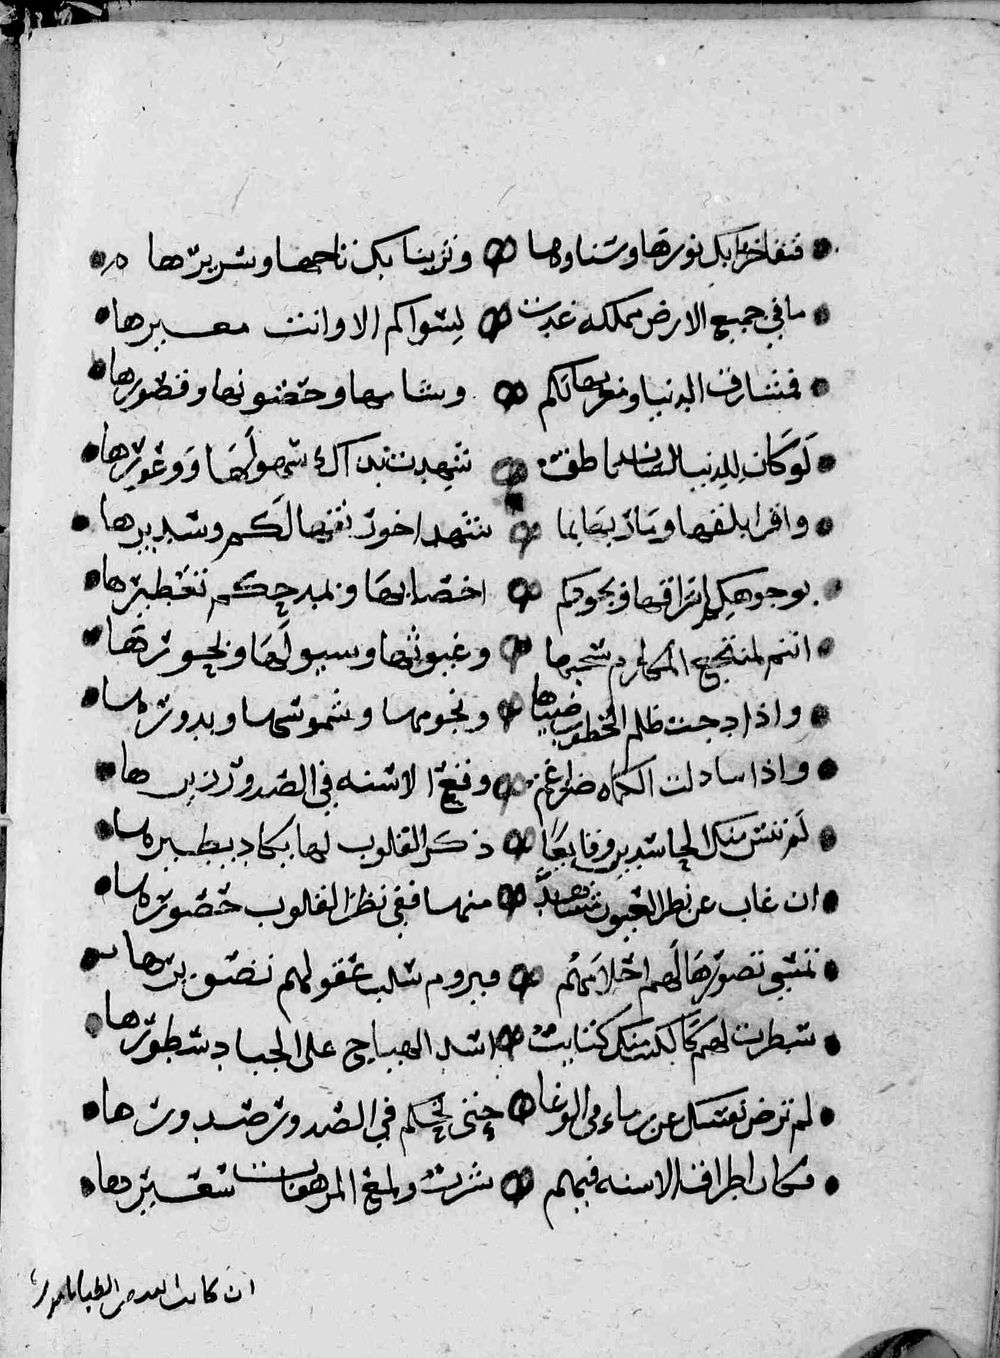 فتفاخرت بك نورها وسناوها وتزينا بك تاجها وسريرها
ما في جميع الارض مملكه غدت لسواكم الا وانت معيرها
فمشارف الدنيا ومغربها لكم وشامها وحصونها وقصورها
لو كان للدنيا لسان ناطق شهدت بذاك سهولها ووعورها
واقرا بلفها شهدا خورنقها لكم وسديرها
بوجوهكم اشراقها وبجودكم اخصابها وبمدحكم تعطيرها
انتم لمنتجع المكارم سحبها وغيوثها وسيولها وبحورها
واذا دجت ظلم الخطوب ضياها ونجومها وشموسها وبدورها
واذا الكماه ضراغم وقع الاسنه في الصدور زيرها
لم تنس منك الحاسدين وقايعا ذكر القلوب لها يكاد يطيرها
ان غاب عن نظر العيون شهيدا منها ففي نظر القلوب حضورها
تمشي تصورها لهم احلامهم ويروم سلب عقولهم تصويرها
سطرت لهم منك كتايب اسد الهياج على الجياد سطورها
لم ترض تغتسل عن دماء في الوغا حتى تحكم في الصدور صدورها
فكان اطراف الاسنه فيهم شرر ولمع المرهفات سعيرها
ان كانت